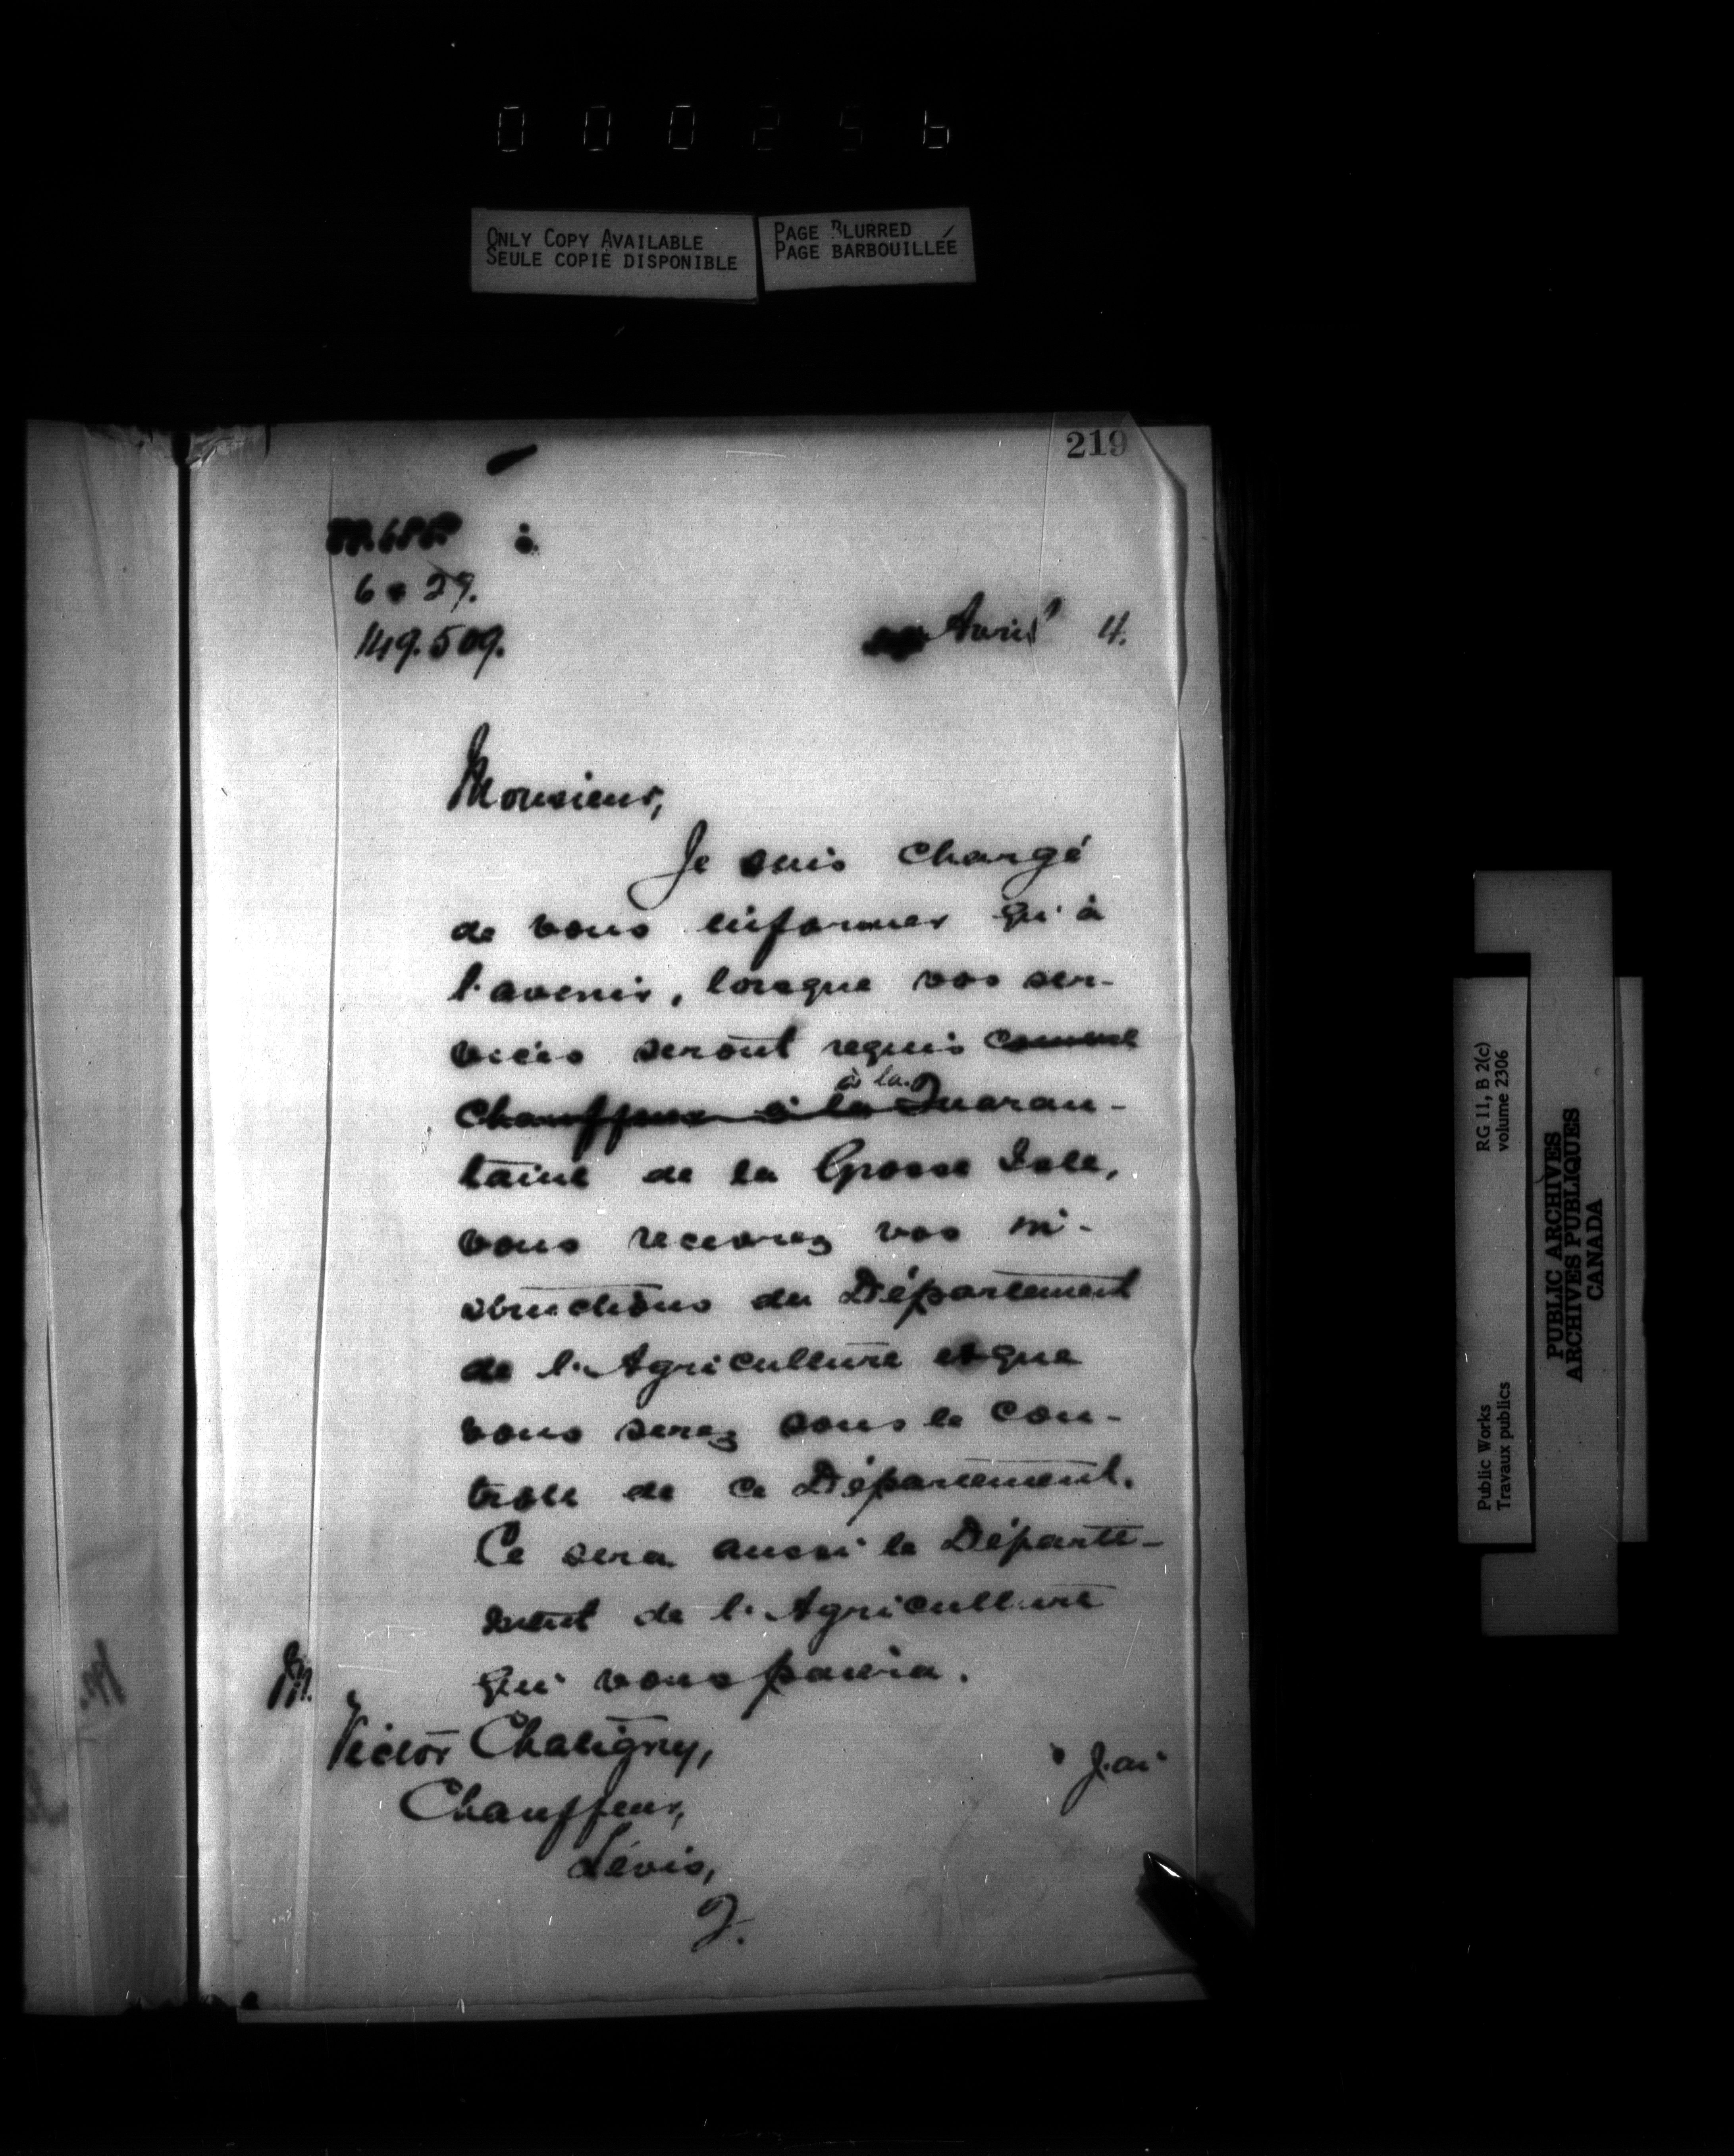 000256
ONLY COPY AVAILABLE
SEULE COPIE DISPONIBLE
PAGE BLURRED
PAGE BARBOUILLÉE
219
6 29.
149.509.
Avril 4.
Monsieur,
Je suis chargé
de vous informer qu'à
l'avenir, lorsque vos ser-
vices seront requis comme
à la
Chauffeur à la Quaran-
taine de la Grosse Isle,
vous recevrez vos in-
structions du Département
de l'Agriculture et que
vous serez sous le con-
trole de ce Département.
Ce sera aussi le Départe-
ment de l'Agriculture
qui vous paiera.
M.
Victor Chatigny,
Chauffeur,
Lévis,
J'ai
RG 11, B 2(c)
volume 2306
Public Works
Travaux publics
PUBLIC ARCHIVES
ARCHIVES PUBLIQUES
CANADA